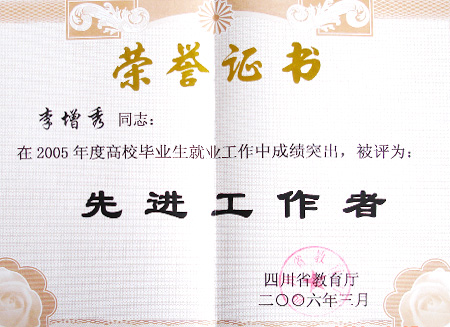 荣誉证书
李增秀 同志：
在2005年度高校毕业生就业工作中成绩突出，被评为：
先进工作者
四川省教育厅
二〇〇六年三月